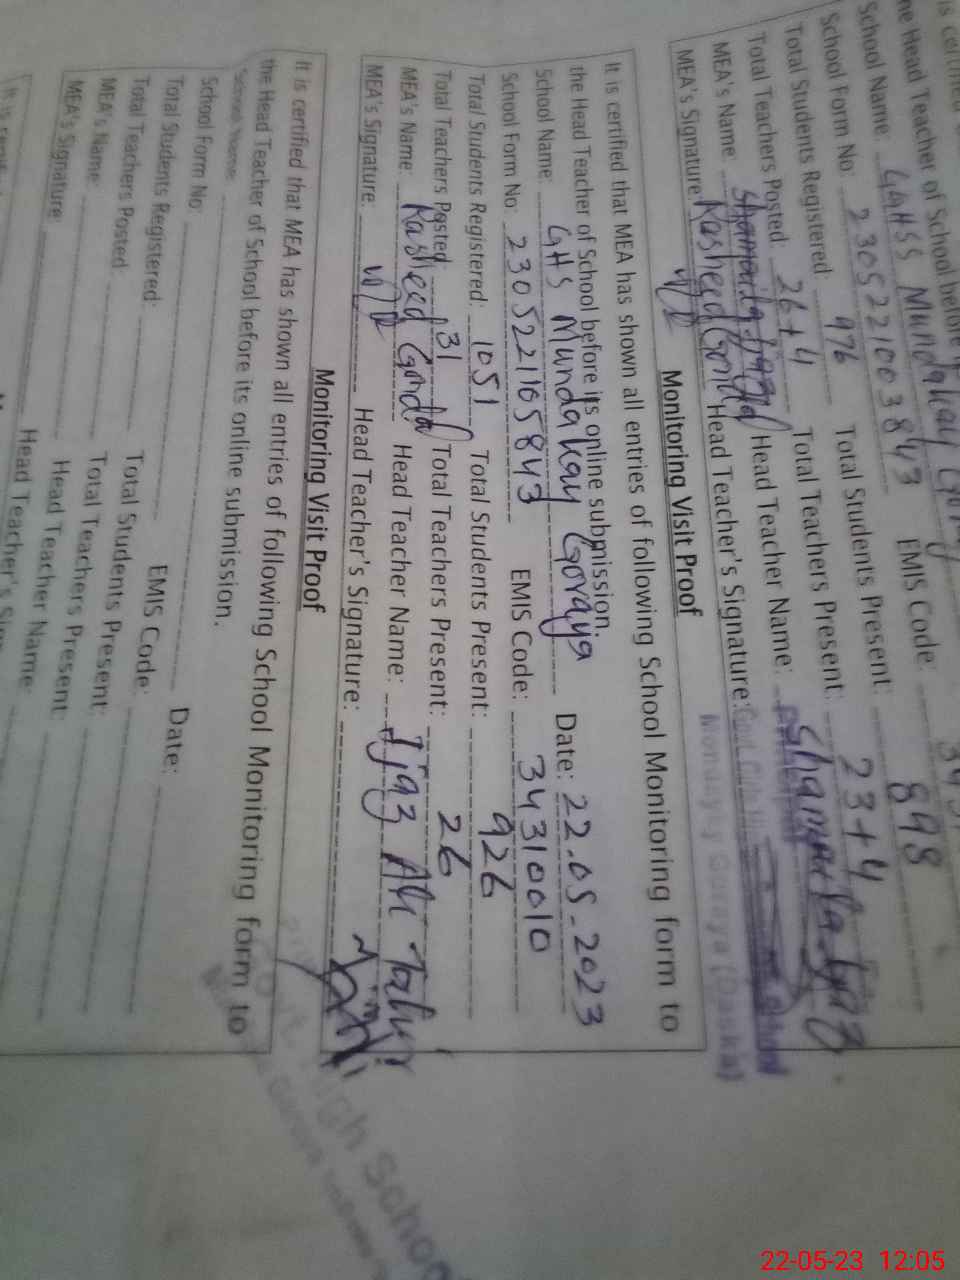 School Name: GGHSS Mundakay Goray
School Form No: 23052210003843 EMIS Code:
Total Students Registered: 976 Total Students Present: 898
Total Teachers Posted: 26+4 Total Teachers Present: 23+4
MEA's Name: Head Teacher Name: Shamaila
MEA's Signature: Head Teacher's Signature:
Monitoring Visit Proof
It is certified that MEA has shown all entries of following School Monitoring form to
the Head Teacher of School before its online submission.
School Name: GHS Mundakay Goraya Date: 22.05.2023
School Form No: 230522110 5843 EMIS Code: 34310010
Total Students Registered: 1051 Total Students Present: 926
Total Teachers Posted: 31 Total Teachers Present: 26
MEA's Name: Rasheed Head Teacher Name: Ijaz Ali Tahir
MEA's Signature: Head Teacher's Signature:
Monitoring Visit Proof
It is certified that MEA has shown all entries of following School Monitoring form to
the Head Teacher of School before its online submission.
School Name: Date:
School Form No: EMIS Code:
Total Students Registered: Total Students Present:
Total Teachers Posted: Total Teachers Present:
MEA's Name: Head Teacher Name:
MEA's Signature: Head Teacher's
High School
22-05-23 12:05